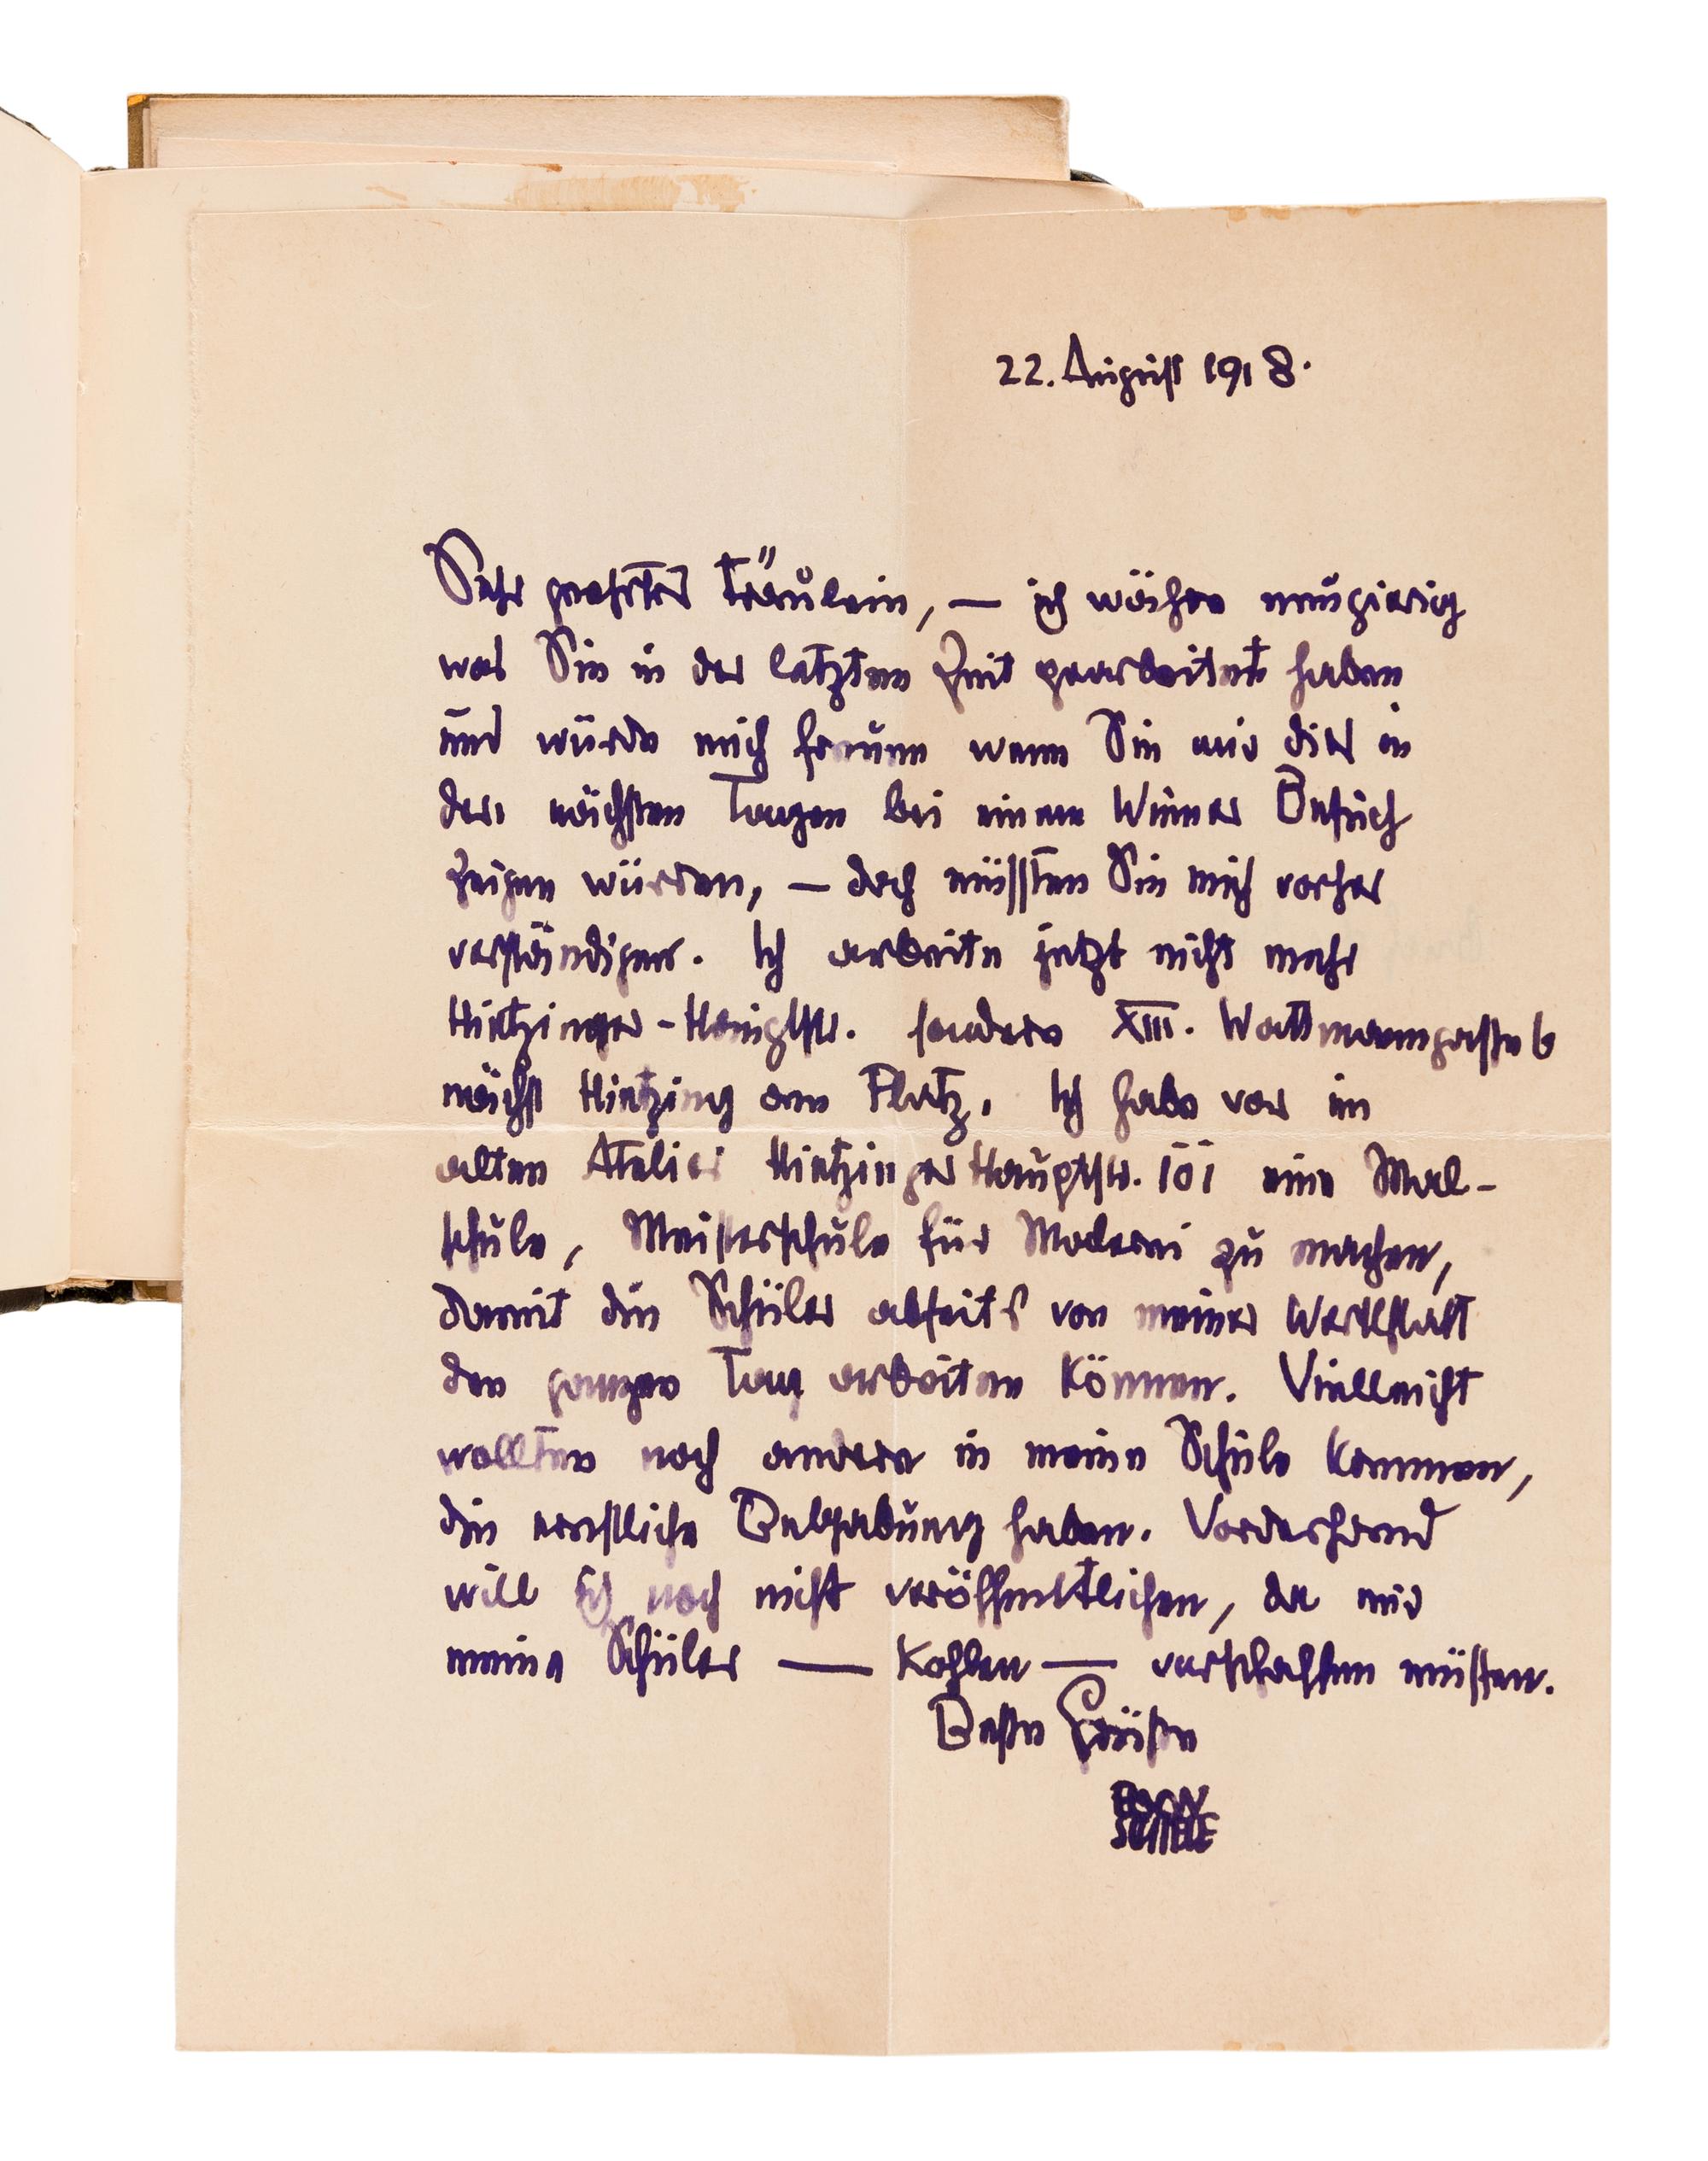 22. August 1918.
Sehr geehrtes Fräulein, — ich wäre neugierig
was Sie in der letzten Zeit gearbeitet haben
und würde mich freuen wenn Sie mir dies in
den nächsten Tagen bei einem Wiener Besuch
zeigen würden, — doch müssten Sie mich vorher
verständigen. Ich arbeite jetzt nicht mehr
Hietzinger-Hauptstr. sondern XIII. Wattmanngasse 6
nächst Hietzing am Platz. Ich habe vor im
alten Atelier Hietzinger Hauptstr. 101 eine Mal-
schule, Meisterschule für Moderni zu machen,
damit die Schüler abseits von meiner Werkstatt
den ganzen Tag arbeiten können. Vielleicht
wollten noch andere in meine Schule kommen,
die ernstliche Begabung haben. Vorderhand
will ich noch nicht veröffentlichen, da mir
meine Schüler — Kohlen — verschaffen müssen.
Beste Grüße
EGON
SCHIELE